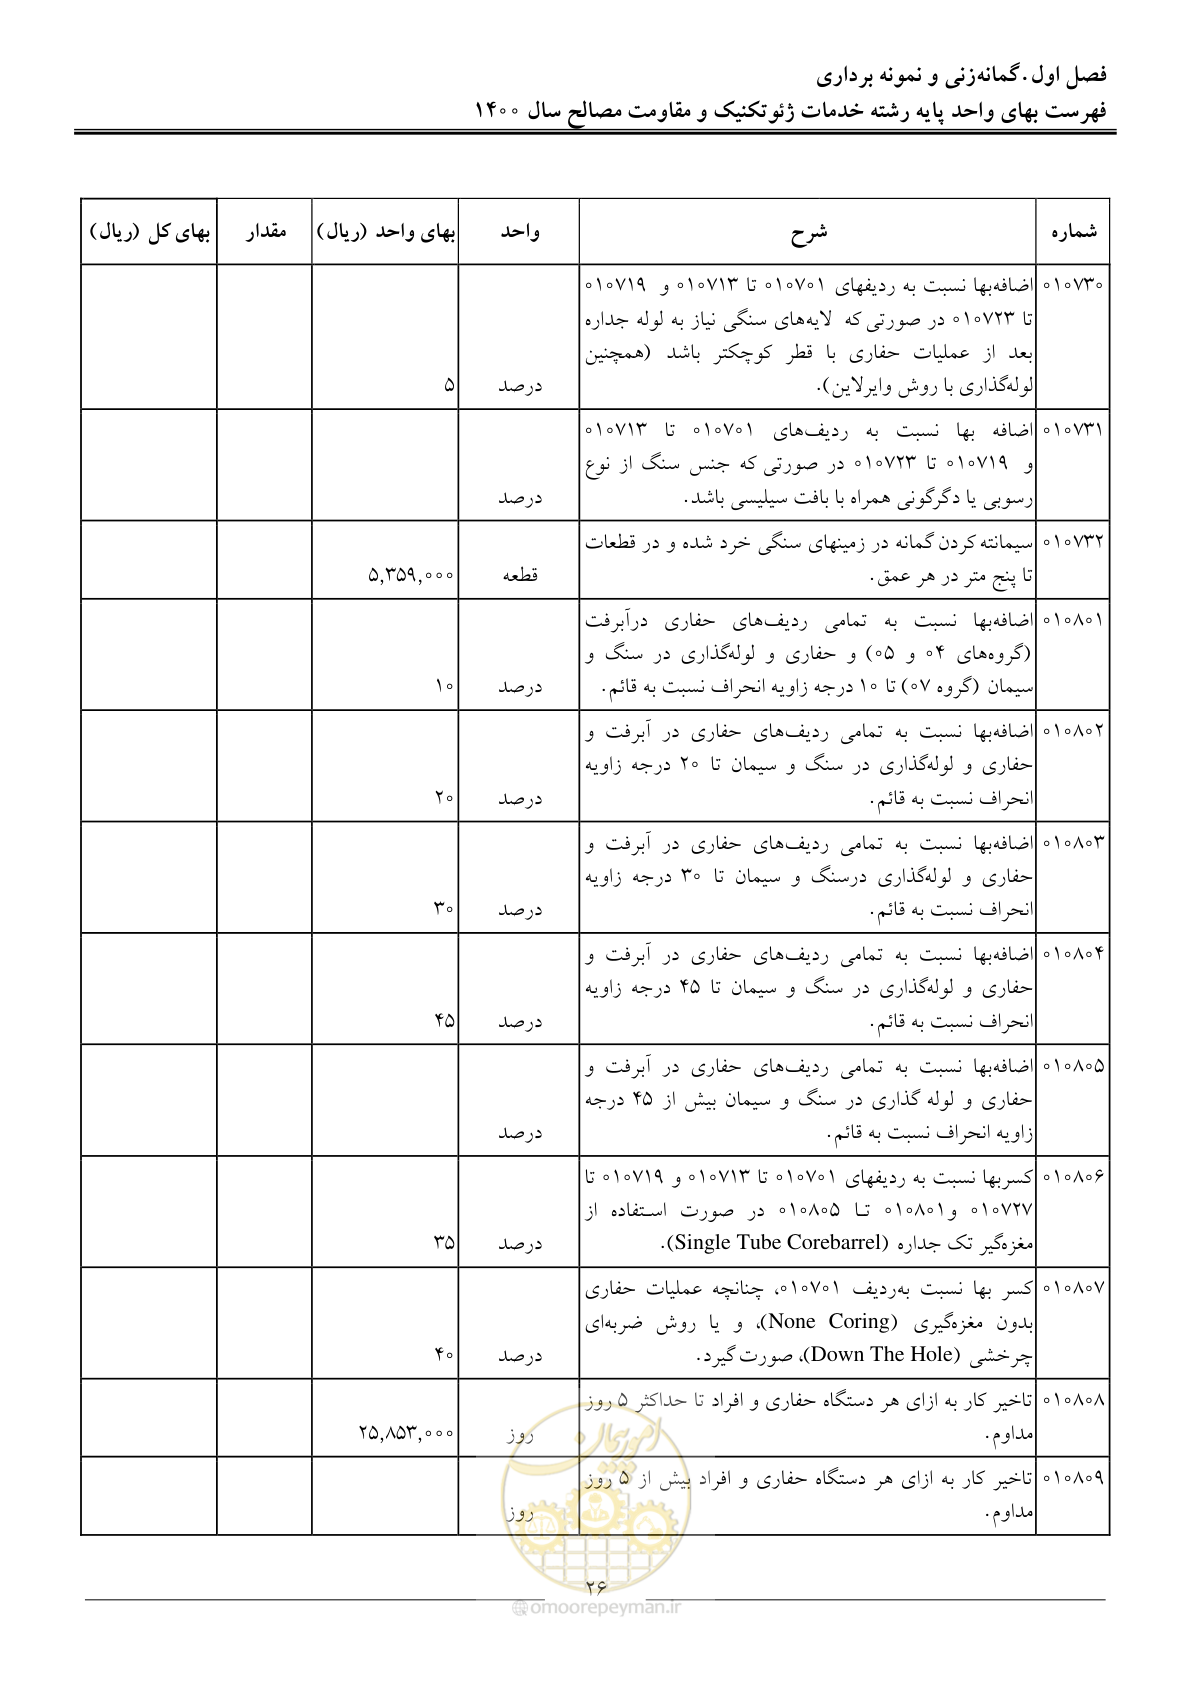 فصل اول.گمانه‌زنی و نمونه برداری
فهرست بهای واحد پایه رشته خدمات ژئوتکنیک و مقاومت مصالح سال ۱۴۰۰
شماره شرح واحد بهای واحد (ریال) مقدار بهای کل (ریال)
۰۱۰۷۳۰ اضافه‌بها نسبت به ردیفهای ۰۱۰۷۰۱ تا ۰۱۰۷۱۳ و ۰۱۰۷۱۹
تا ۰۱۰۷۲۳ در صورتی که لایه‌های سنگی نیاز به لوله جداره
بعد از عملیات حفاری با قطر کوچکتر باشد (همچنین
لوله‌گذاری با روش وایرلاین). درصد ۵
۰۱۰۷۳۱ اضافه بها نسبت به ردیف‌های ۰۱۰۷۰۱ تا ۰۱۰۷۱۳
و ۰۱۰۷۱۹ تا ۰۱۰۷۲۳ در صورتی که جنس سنگ از نوع
رسوبی یا دگرگونی همراه با بافت سیلیسی باشد. درصد
۰۱۰۷۳۲ سیمانته کردن گمانه در زمینهای سنگی خرد شده و در قطعات
تا پنج متر در هر عمق. قطعه ۵,۳۵۹,۰۰۰
۰۱۰۸۰۱ اضافه‌بها نسبت به تمامی ردیف‌های حفاری درآبرفت
(گروه‌های ۰۴ و ۰۵) و حفاری و لوله‌گذاری در سنگ و
سیمان (گروه ۰۷) تا ۱۰ درجه زاویه انحراف نسبت به قائم. درصد ۱۰
۰۱۰۸۰۲ اضافه‌بها نسبت به تمامی ردیف‌های حفاری در آبرفت و
حفاری و لوله‌گذاری در سنگ و سیمان تا ۲۰ درجه زاویه
انحراف نسبت به قائم. درصد ۲۰
۰۱۰۸۰۳ اضافه‌بها نسبت به تمامی ردیف‌های حفاری در آبرفت و
حفاری و لوله‌گذاری درسنگ و سیمان تا ۳۰ درجه زاویه
انحراف نسبت به قائم. درصد ۳۰
۰۱۰۸۰۴ اضافه‌بها نسبت به تمامی ردیف‌های حفاری در آبرفت و
حفاری و لوله‌گذاری در سنگ و سیمان تا ۴۵ درجه زاویه
انحراف نسبت به قائم. درصد ۴۵
۰۱۰۸۰۵ اضافه‌بها نسبت به تمامی ردیف‌های حفاری در آبرفت و
حفاری و لوله گذاری در سنگ و سیمان بیش از ۴۵ درجه
زاویه انحراف نسبت به قائم. درصد
۰۱۰۸۰۶ کسربها نسبت به ردیفهای ۰۱۰۷۰۱ تا ۰۱۰۷۱۳ و ۰۱۰۷۱۹ تا
۰۱۰۷۲۷ و۰۱۰۸۰۱ تا ۰۱۰۸۰۵ در صورت استفاده از
مغزه‌گیر تک جداره (Single Tube Corebarrel). درصد ۳۵
۰۱۰۸۰۷ کسر بها نسبت به‌ردیف ۰۱۰۷۰۱، چنانچه عملیات حفاری
بدون مغزه‌گیری (None Coring)، و یا روش ضربه‌ای
چرخشی (Down The Hole)، صورت گیرد. درصد ۴۰
۰۱۰۸۰۸ تاخیر کار به ازای هر دستگاه حفاری و افراد تا حداکثر ۵ روز
مداوم. روز ۲۵,۸۵۳,۰۰۰
۰۱۰۸۰۹ تاخیر کار به ازای هر دستگاه حفاری و افراد بیش از ۵ روز
مداوم. روز
امور پیمان
۲۶
omoorepeyman.ir